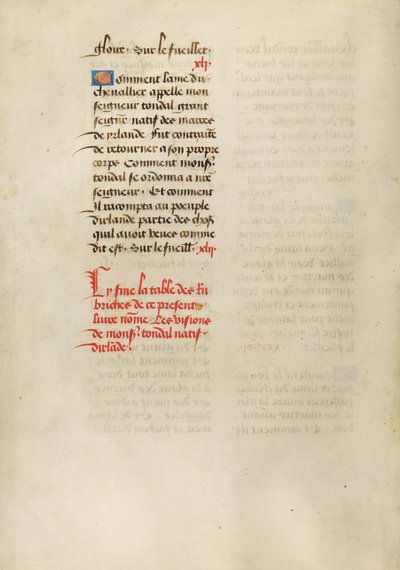 gloire. Sur le fueillet.
xli.
Comment lame du
chevallier appelle mon
seigneur tondal grant
seignr natif des marces
de yrlande. Fut contraite
de retourner a son propre
corps Comment monsr
tondal se ordonna a nre
seigneur. Et comment
Il racompta au poeuple
dirlande partie des choses
quil avoit veues comme
dit est. Sur le fueill. xlii.
Cy fine la table des Ru
briches de ce present
livre nomme Les visions
de monsr tondal natif
dirlande.